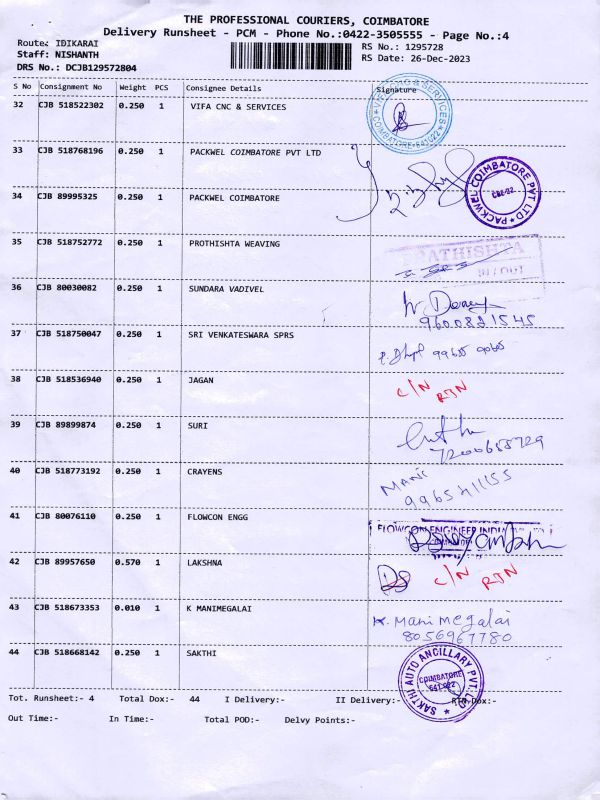 THE PROFESSIONAL COURIERS, COIMBATORE
Delivery Runsheet - PCM - Phone No.:0422-3505555 - Page No.:4
Route: IDIKARAI RS No.: 1295728
Staff: NISHANTH RS Date: 26-Dec-2023
DRS No.: DCJB129572804
S No Consignment No Weight PCS Consignee Details Signature
32 CJB 518522302 0.250 1 VIFA CNC & SERVICES
COIMBATORE-641022
33 CJB 518768196 0.250 1 PACKWEL COIMBATORE PVT LTD
34 CJB 89995325 0.250 1 PACKWEL COIMBATORE
PACKWEL COIMBATORE PVT LTD
35 CJB 518752772 0.250 1 PROTHISHTA WEAVING
PRATHISHTA
IN / OUT
36 CJB 80030082 0.250 1 SUNDARA VADIVEL
9600821545
37 CJB 518750047 0.250 1 SRI VENKATESWARA SPRS
38 CJB 518536940 0.250 1 JAGAN
C/N
RTN
39 CJB 89899874 0.250 1 SURI
40 CJB 518773192 0.250 1 CRAYENS
MANI
41 CJB 80076110 0.250 1 FLOWCON ENGG
42 CJB 89957650 0.570 1 LAKSHNA
C/N RTN
43 CJB 518673353 0.010 1 K MANIMEGALAI
K. Mani megalai
8056967780
44 CJB 518668142 0.250 1 SAKTHI
SAKTHI AUTO ANCILLARY PVT. LTD
COIMBATORE
641 022
Tot. Runsheet:- 4 Total Dox:- 44 I Delivery:- II Delivery:- RTN Dox:-
Out Time:- In Time:- Total POD:- Delvy Points:-